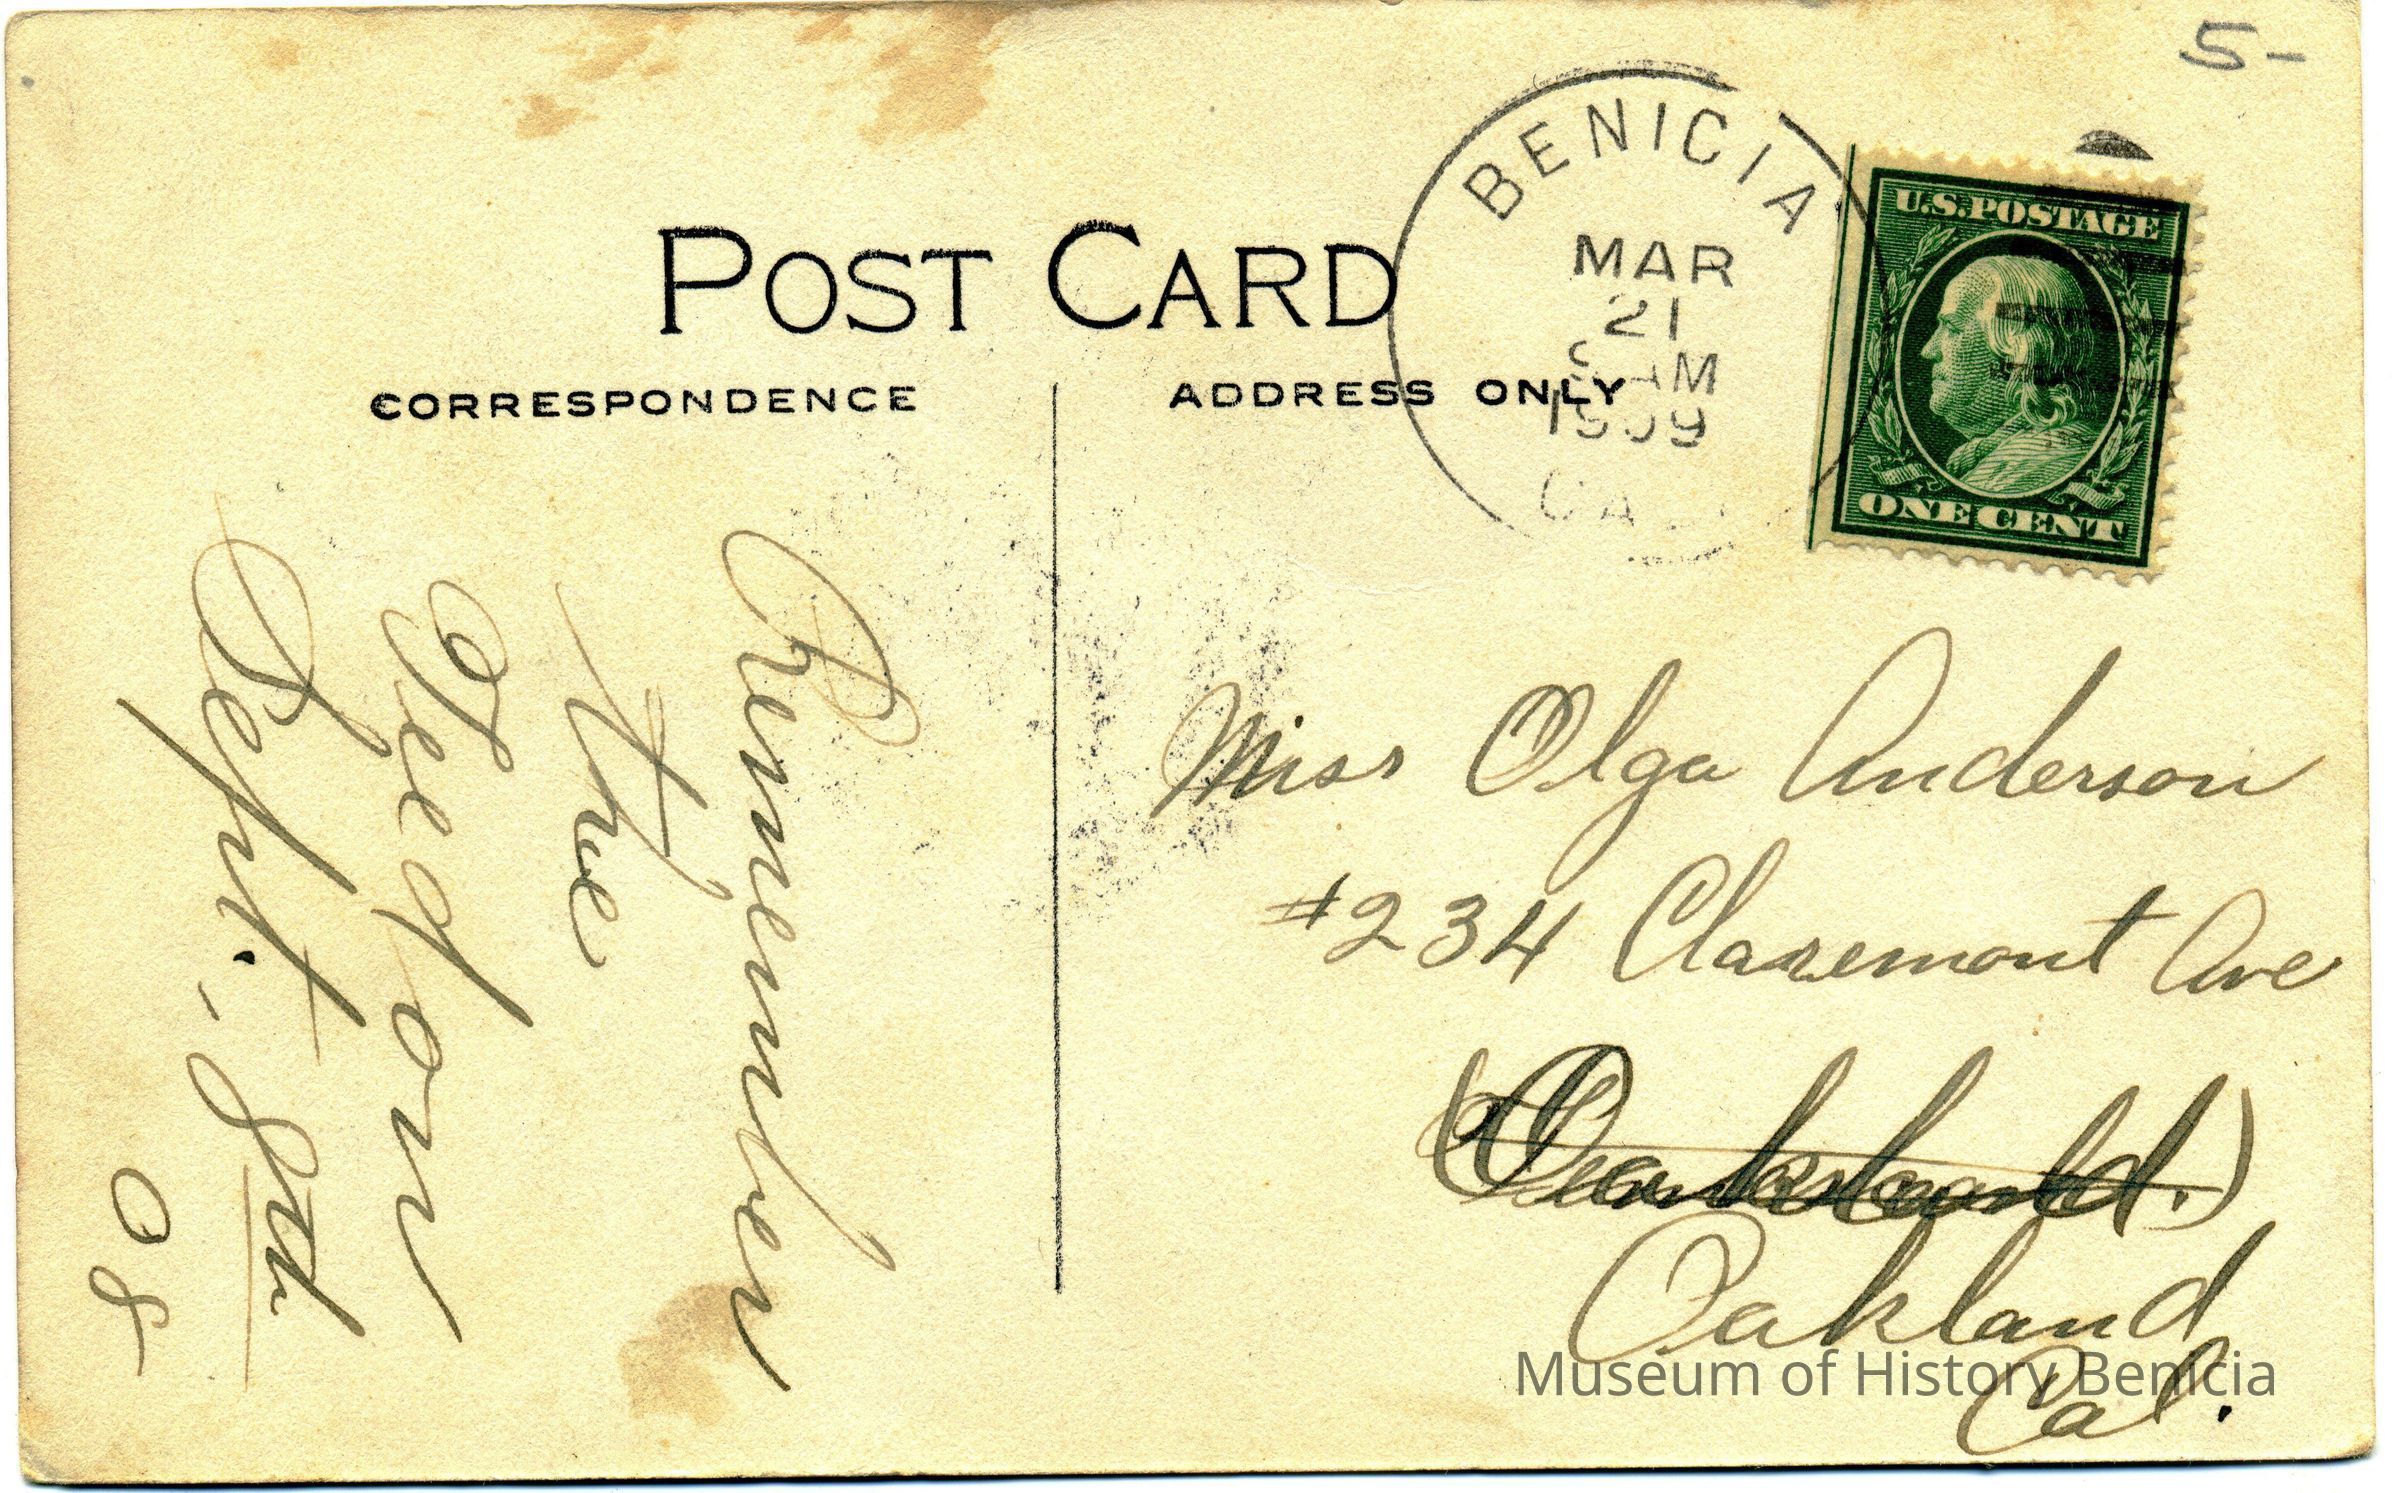 5-
POST CARD
CORRESPONDENCE
ADDRESS ONLY
BENICIA
MAR
21
AM
1909
CAL
U.S. POSTAGE
ONE CENT
Remember
the
Sept. - 8th
08
Miss Olga Anderson
#234 Claremont Ave
Oakland
Cal.
Museum of History Benicia